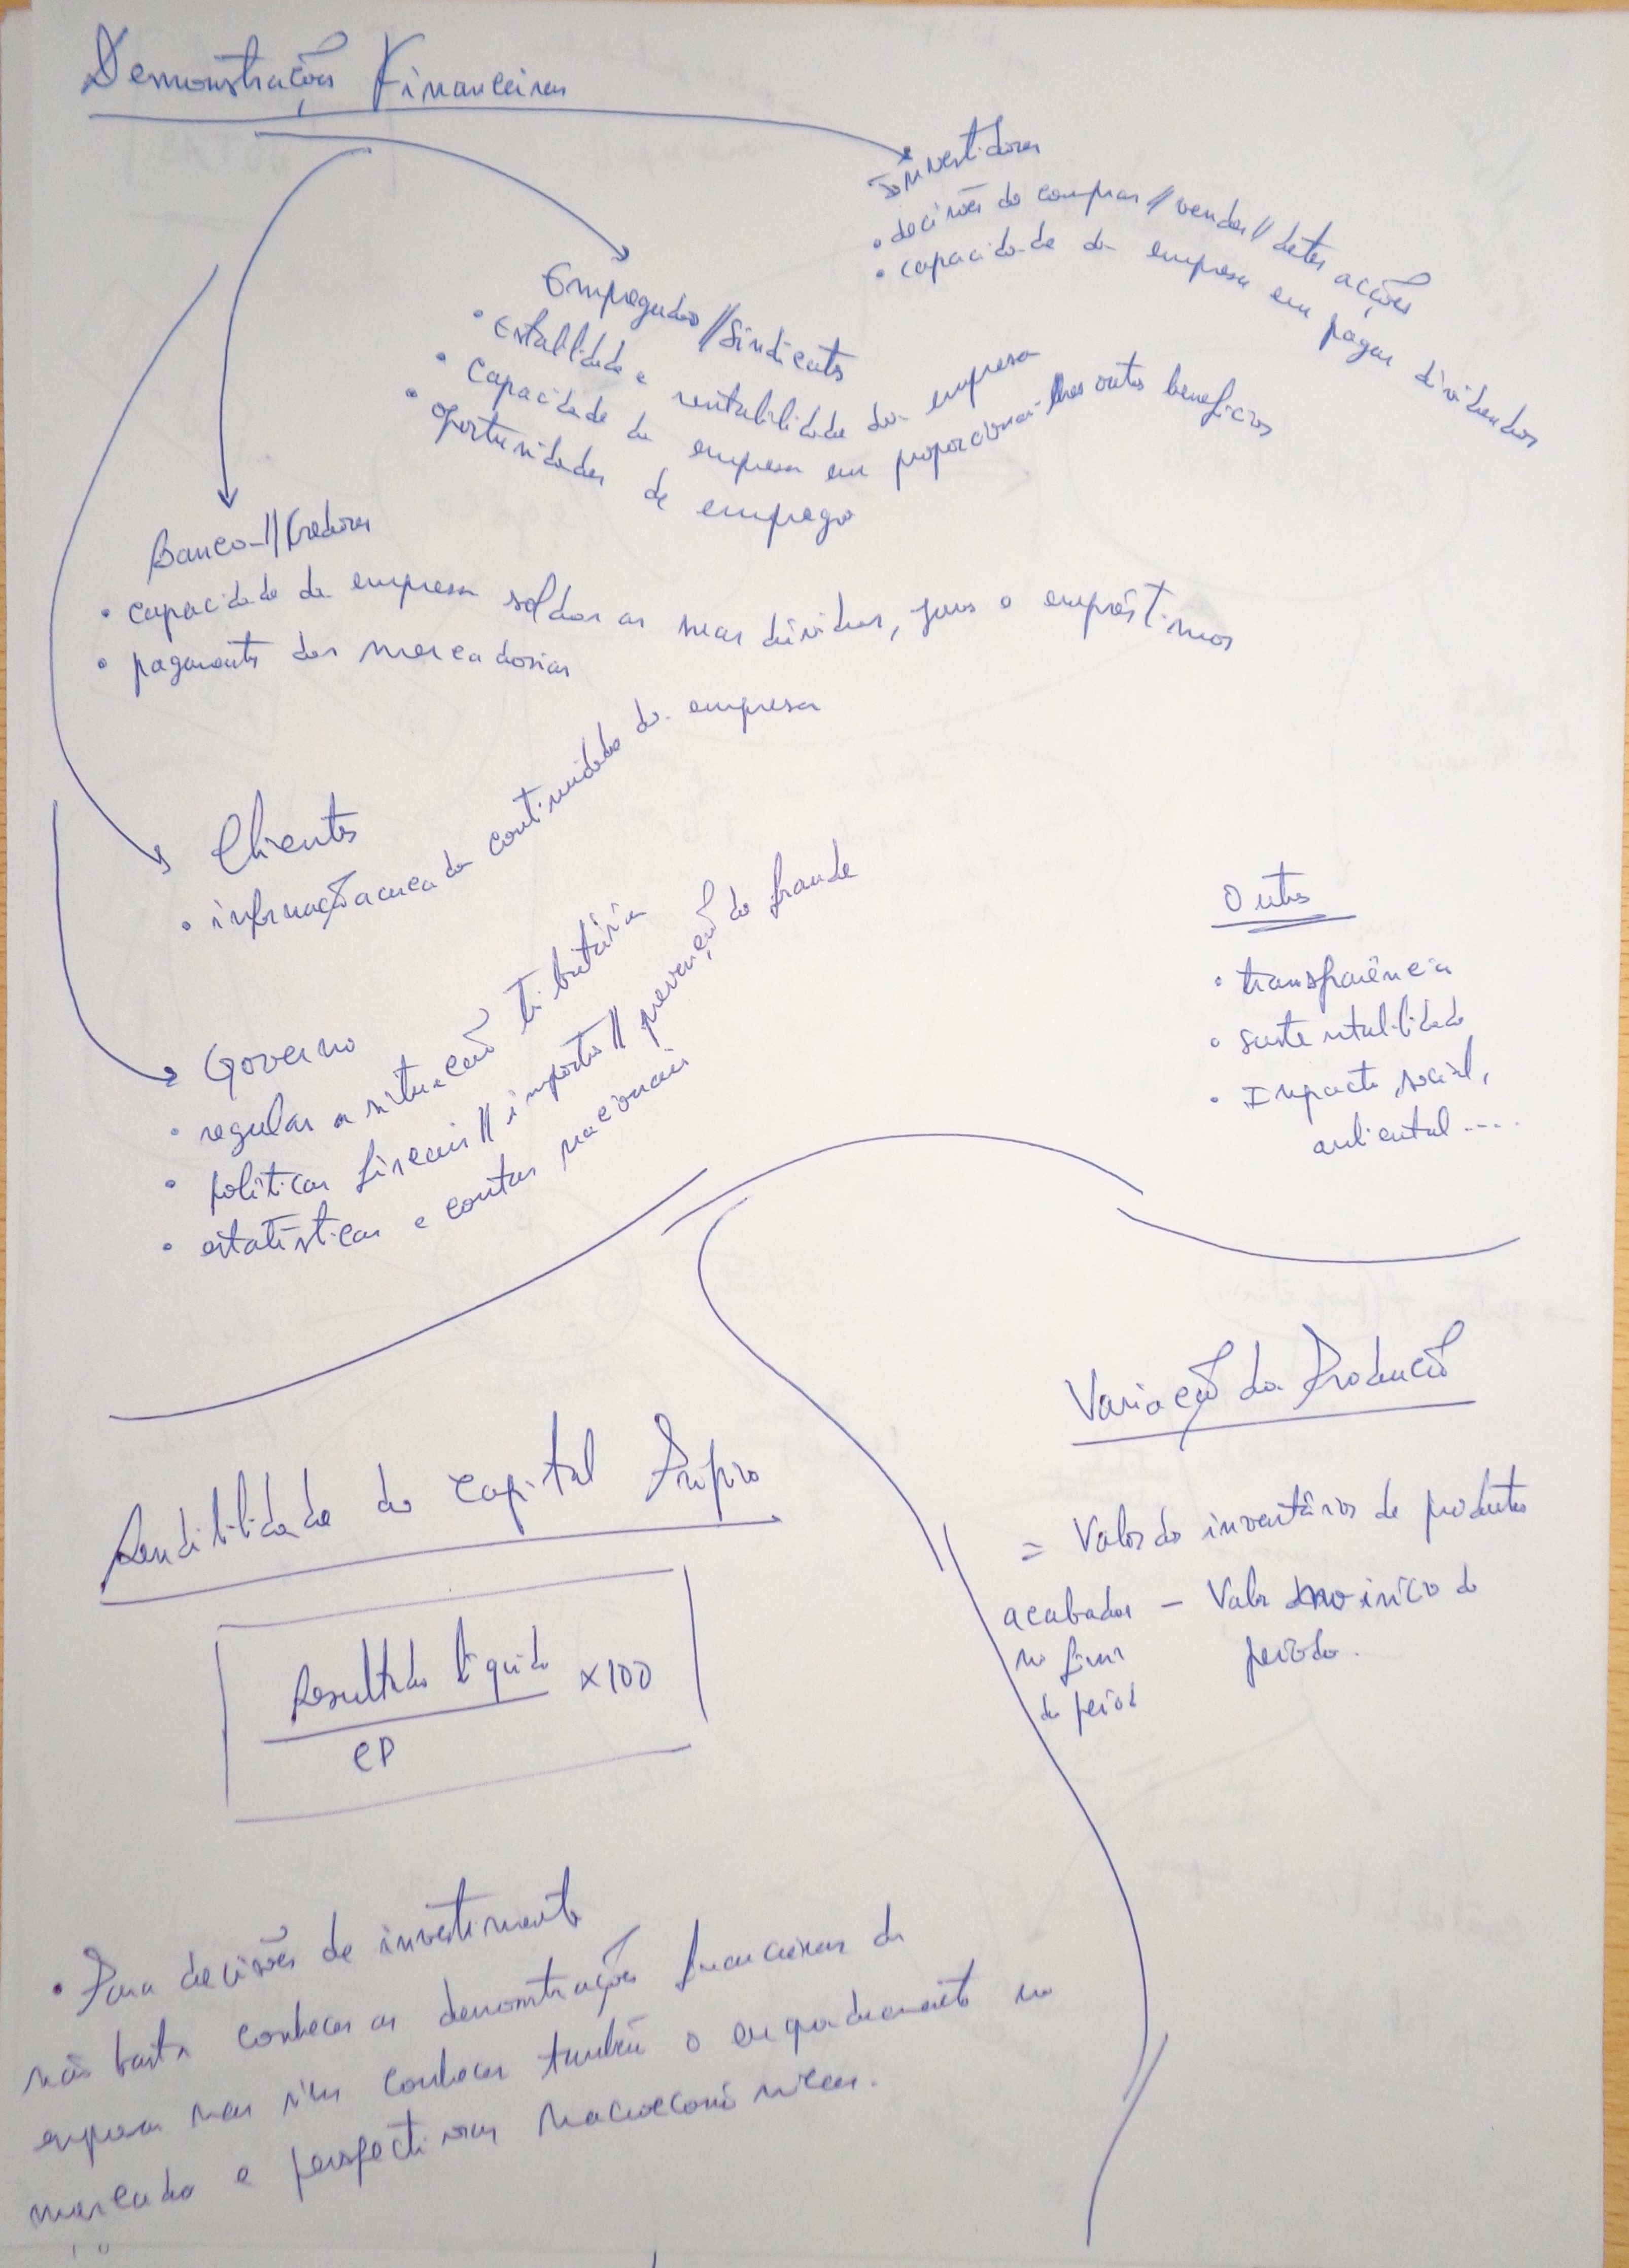 Demonstrações Financeiras
Investidores
• decisões de comprar // vender // deter acções
• capacidade da empresa em pagar dividendos
Empregados // Sindicatos
• estabilidade e rentabilidade da empresa
• capacidade da empresa em proporcionar-lhes outros benefícios
• oportunidades de emprego
Banco // Credores
• capacidade da empresa soldar as suas dívidas, juros e empréstimos
• pagamento das mercadorias
Clientes
• informação acerca da continuidade da empresa
Governo
• regular a situação tributária
• políticas fiscais // impostos // prevenção de fraude
• estatísticas e contas nacionais
Outros
• transparência
• sustentabilidade
• Impacto social,
ambiental ....
Rendibilidade do Capital Próprio
Resultado líquido
x100
CP
Variação da Produção
= Valor do inventários de produtos
acabados - Valor no início do
no fim período.
do período
• Para decisões de investimento
não basta conhecer as demonstrações financeiras da
empresa mas sim conhecer também o enquadramento no
mercado e perspectivas macroeconómicas.